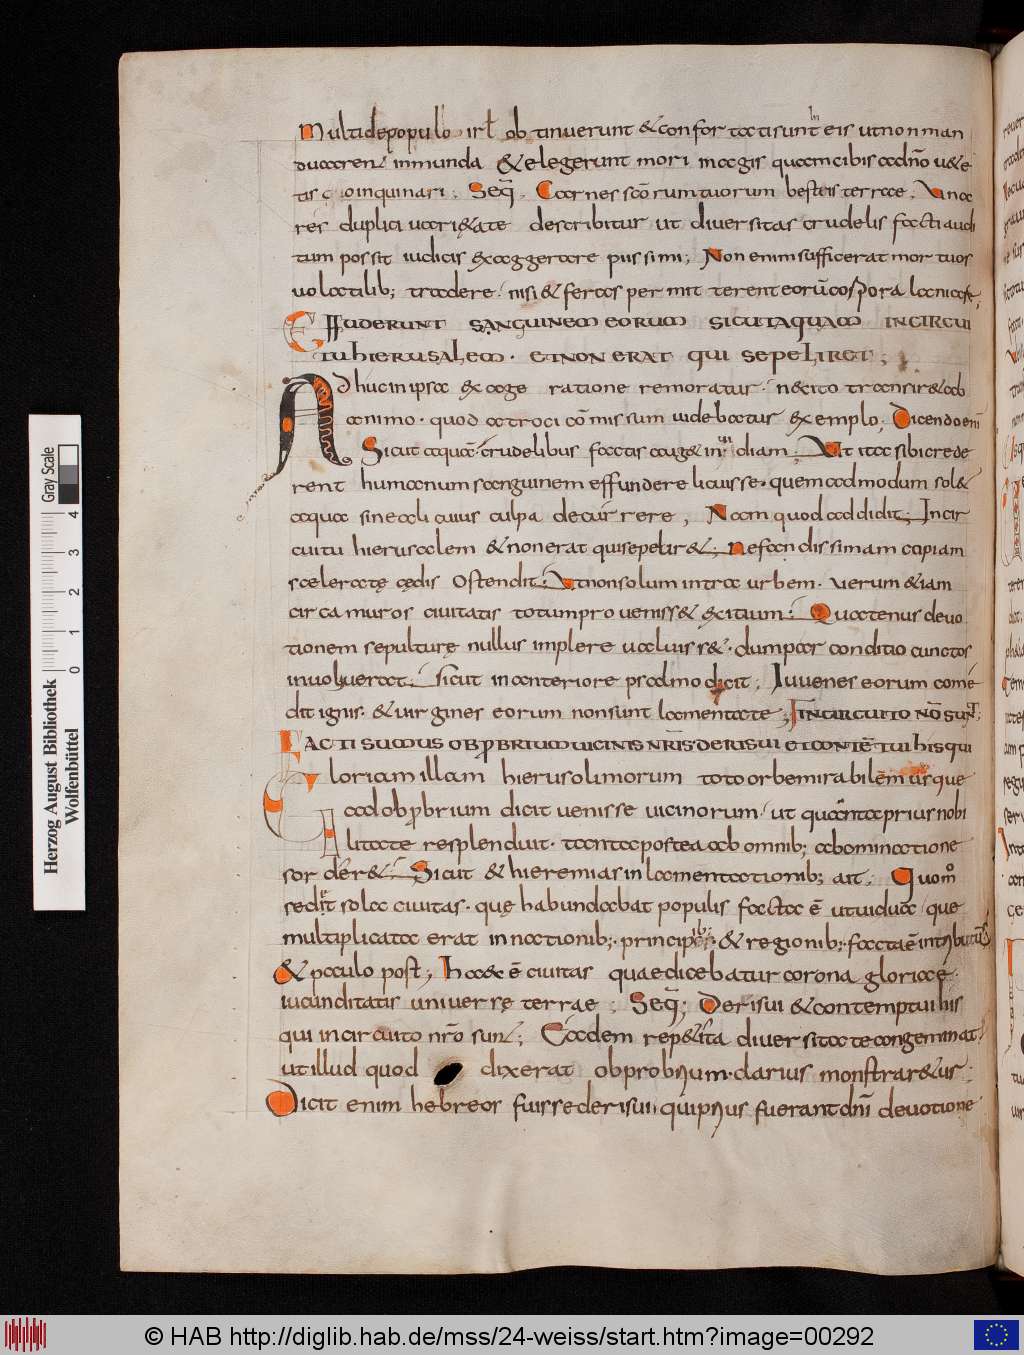 Multi de populo irl obtinuerunt & confortati sunt in eis ut non man
ducaren inmunda & elegerunt mori magis quam cibis adno u&e
tis coinquinari. Seq. Carnes scōrum tuorum bestiis terrae. Una
res duplici uari&ate describitur ut diuersitas crudelis facti audi
tum possit iudicis exaggerare piissimi; Non enim sufficerat mortuos
uolatilib; tradere. nisi & feras permitterent eorū corpora laniare;
Effuderunt sanguinem eorum sicut aquam in circui
tu hierusalem. et non erat qui sepeliret;
Adhuc in ipsa exage ratione remoratur. n&cito transir& ab
animo. quod atroci cōmissum uidebatur exemplo; Dicendo enī
Sicut aquā. crudelibus factis aug& inuidiam; Ut ita sibi crede
rent humanum sanguinem effundere licuisse. quemadmodum sol&
aqua sine alicuius culpa decurrere, Nam quod addidit; In cir
cuitu hierusalem & non erat qui sepelir&; nefandissimam capiam
sceleratę cędis ostendit; Ut non solum intra urbem. uerum & iam
circa muros ciuitatis totum proueniss& exitium; Quatenus deuo
tionem sepulturę nullus implere ualuiss&. dum par conditio cunctos
inuoluerat; sicut in anteriore psalmo dicit; Iuuenes eorum come
dit ignis. & uirgines eorum non sunt lamentate; In circuito nō sunt;
Facti sumus obprbrium uicinis nr̄is derisui et contētui his qui
Gloriam illam hierusolimorum toto orbe mirabilem usque
ad obprbrium dicit uenisse uicinorum. ut quanta prius nobi
litate resplenduit. tanta postea ab omnib; abominatione
sorder&; Sicut & hieremias in lamentationib; ait; Quom̄
sedit sola ciuitas. quę habundabat populis facta ē ut uidua que
multiplicata erat in nationib;. princip & regionib;. facta ē in tributū
& paculo post; haec ē ciuitas quae dicebatur corona gloriae.
iucunditatis uniuerrę terrae; Seq; Derisui & contemptui his
qui in circuito nr̄o sun; Eadem rep&ita diuersitate congeminat
ut illud quod dixerat obprobrium. clarius monstrar&us;
Dicit enim hebreos fuisse derisui, qui prius fuerant dn̄i deuotione
Herzog August Bibliothek
Wolfenbüttel
0 1 2 3 4
Gray Scale
© HAB http://diglib.hab.de/mss/24-weiss/start.htm?image=00292